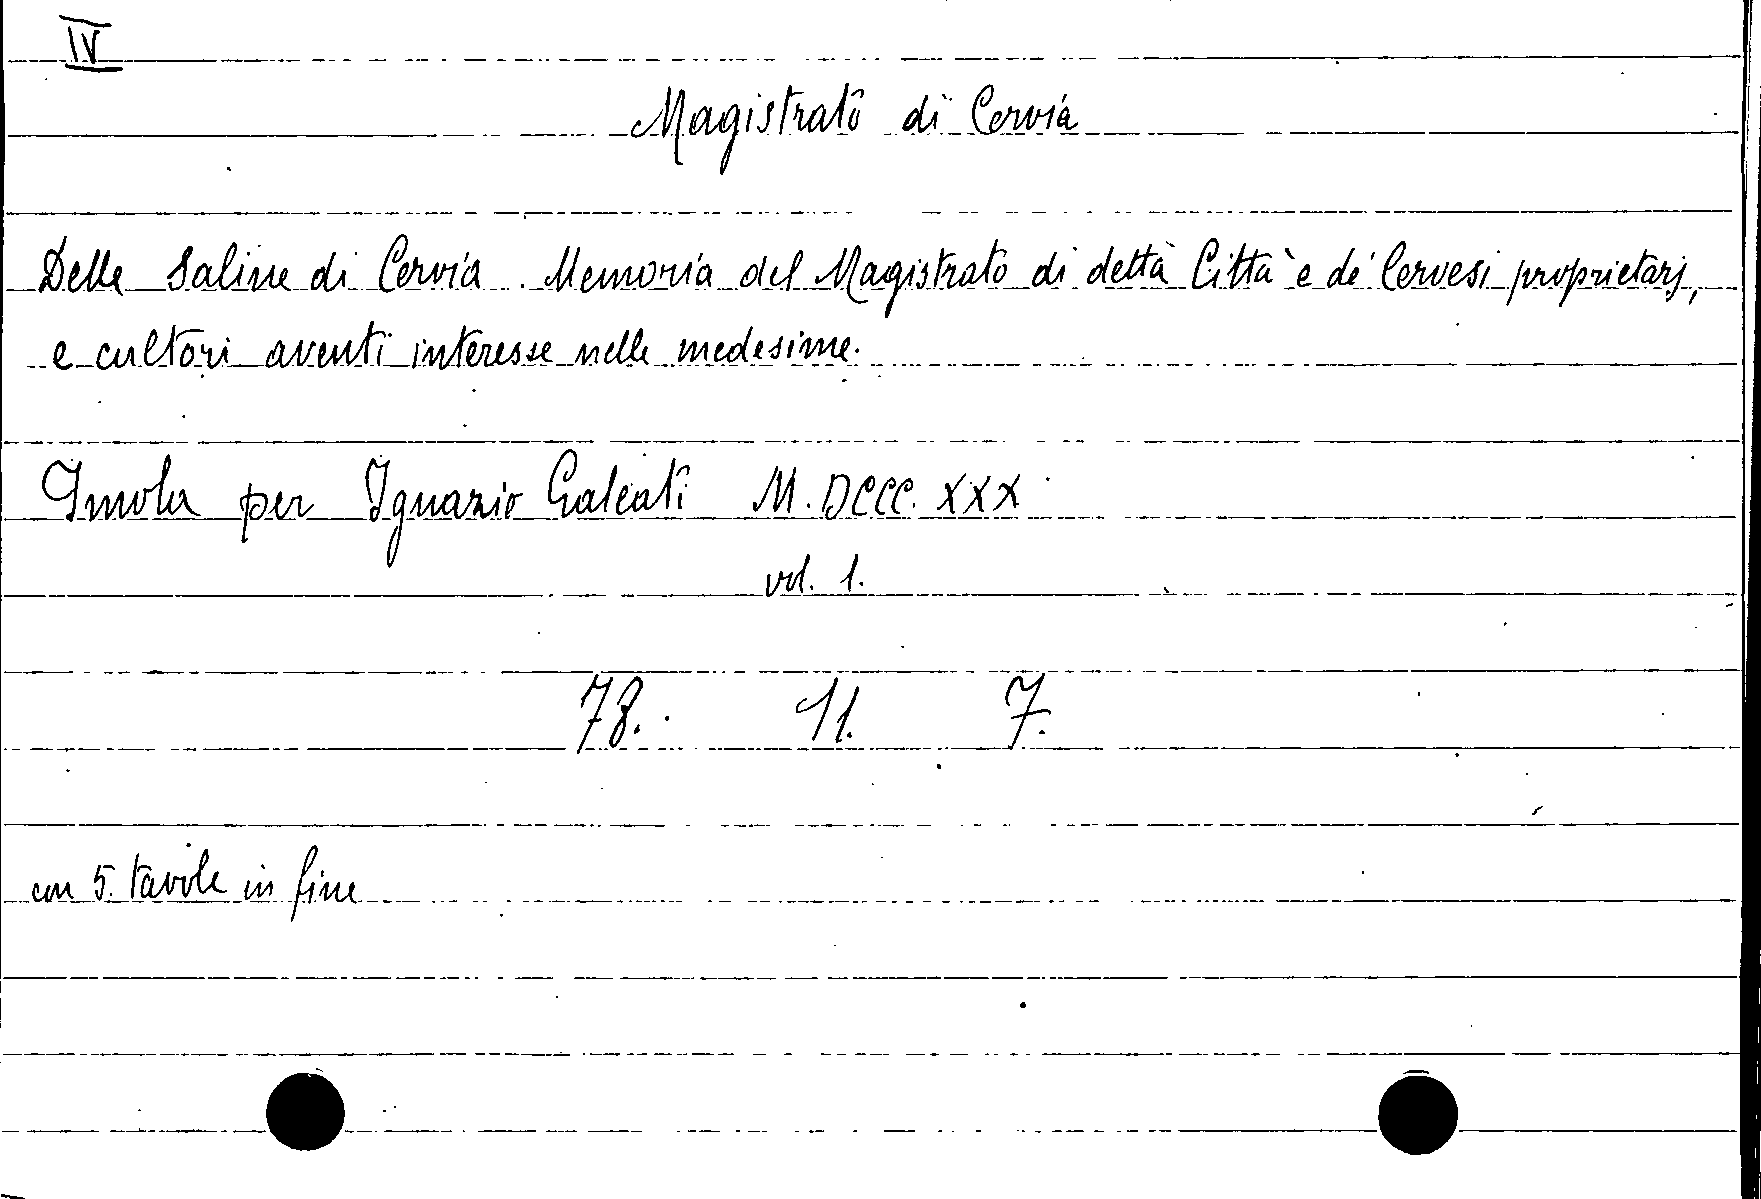 IV
Magistrato di Cervia
Delle Saline di Cervia. Memoria del Magistrato di detta Città e de' Cervesi proprietarj,
e cultori aventi interesse nelle medesime.
Imola per Ignazio Galeati M.DCCC.XXX
vol. 1.
78. 11. 7.
con 5. tavole in fine